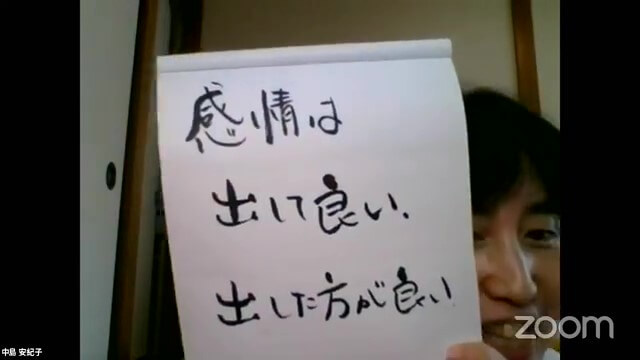 感情は
出して良い、
出した方が良い
zoom
中島 安紀子